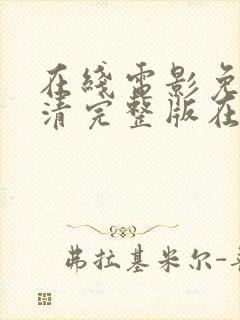 在綫電影免
清完整版在
弗拉基米尔-